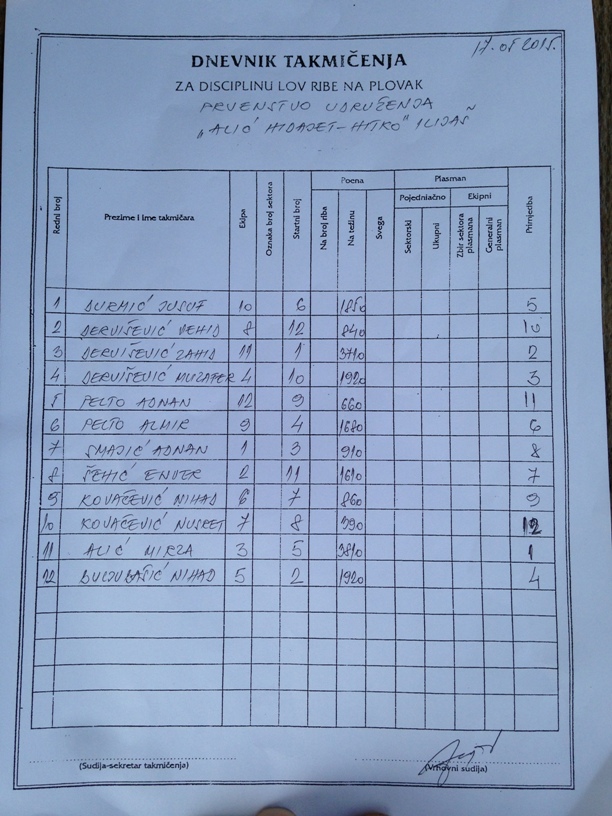 17.05 2015.
DNEVNIK TAKMIČENJA
ZA DISCIPLINU LOV RIBE NA PLOVAK
PRVENSTVO UDRUŽENJA
„ALIĆ HIDAJET-HITKO" ILIJAŠ
Poena Plasman
Pojedniačno Ekipni
Redni broj Prezime i ime takmičara Ekipa Oznaka broj sektora Startni broj Na broj riba Na težinu Svega Sektorski Ukupni Zbir sektora plasmana Generalni plasman Primjedba
1 DURMIĆ JUSUF 10 6 1850 5
2 DERVIŠEVIĆ VEHID 8 12 840 10
3 DERVIŠEVIĆ ZAHID 11 1 3710 2
4 DERVIŠEVIĆ MUZAFER 4 10 1920 3
5 PELTO ADNAN 12 9 660 11
6 PELTO ALMIR 9 4 1680 6
7 SMAJIĆ ADNAN 1 3 910 8
8 ŠEHIĆ ENVER 2 11 1610 7
9 KOVAČEVIĆ NIHAD 6 7 860 9
10 KOVAČEVIĆ NUSRET 7 8 590 12
11 ALIĆ MIRZA 3 5 3810 1
12 BULJUBAŠIĆ NIHAD 5 2 1920 4
(Sudija-sekretar takmičenja) (Vrhovni sudija)